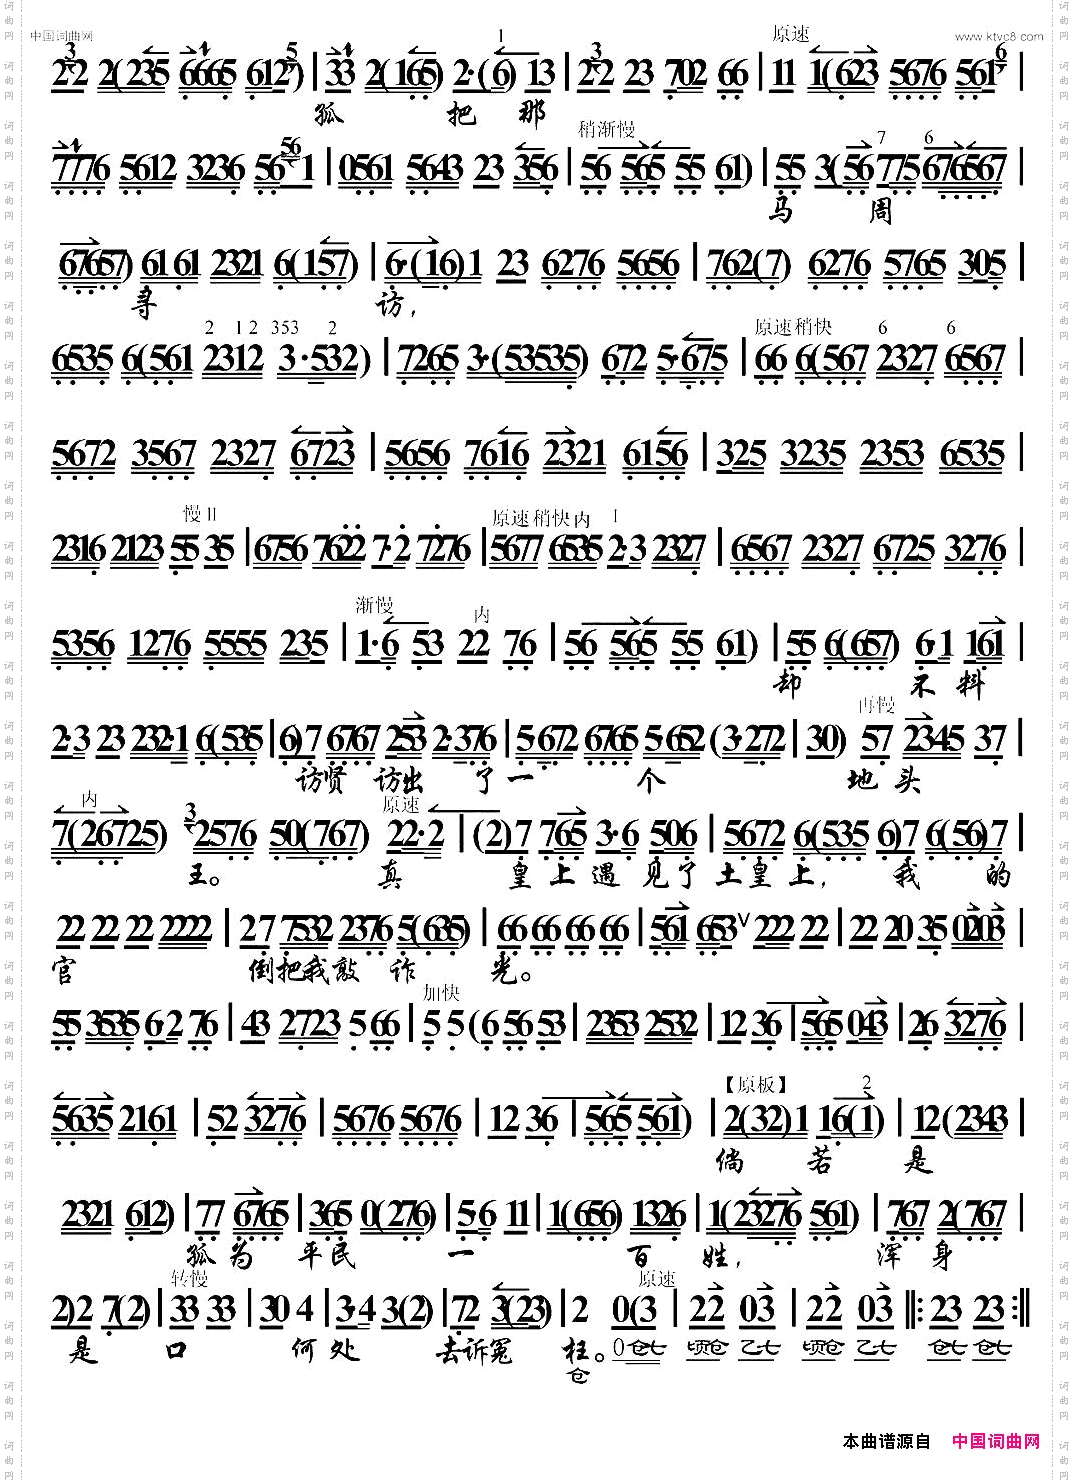 中国词曲网 1 原速 www.ktvc8.com
2 2 2(235 6665 612) | 33 2(165) 2·(6) 13 | 22 23 702 66 | 11 1(623 5676 561 |
孤 把 那
稍渐慢
7776 5612 3236 56 1 | 0561 5643 23 356 | 56 565 55 61) | 55 3(56 775 676567 |
马 周
67657) 61 61 2321 6(157) | 6·(16)1 23 6276 5656 | 762(7) 6276 5765 305 |
寻 访，
原速稍快
6535 6(561 2312 3·532) | 7265 3·(53535) 672 5·675 | 66 6(567 2327 6567 |
5672 3567 2327 6723 | 5656 7616 2321 6156 | 325 3235 2353 6535 |
慢II 原速稍快 内
2316 2123 55 35 | 6756 7622 7·2 7276 | 5677 6535 2·3 2327 | 6567 2327 6725 3276 |
渐慢 内
5356 1276 5555 235 | 1·6 53 22 76 | 56 565 55 61) | 55 6(657) 6·1 161 |
却 不 料
再慢
2·3 23 232·1 6(535) | 6)7 6767 253 2·376 | 5 672 6765 5 652 (3·272 | 30) 57 2345 37 |
访贤 访出 了一 个 地头
内 原速
7(26725) 2576 50(767) 22·2 | (2)7 765 3·6 506 | 5672 6(535 6)7 6(56)7 |
王。 真 皇上遇见了土皇上， 我 的
22 22 22 2222 | 27 7532 2376 5(635) | 66 66 66 66 | 561 653 222 22 | 22 20 35 0203 |
官 倒把我敲诈 光。
加快
55 3535 6·2 76 | 43 2723 5 66 | 5 5 (6 56 53 | 2353 2532 | 12 36 | 565 043 | 26 3276 |
【原板】 2
5635 2161 | 52 3276 | 5676 5676 | 12 36 565 561) | 2(32)1 16(1) | 12(2343
倘 若 是
2321 612) | 77 6765 | 365 0(276) | 5·6 11 | 1(656) 1326 | 1(23276 561) | 767 2(767 |
孤为 平民 一 百 姓， 浑 身
转慢 原速
2)2 7(2) | 33 33 | 30 4 | 3·4 3(2) | 72 3(23) | 2 0(3 | 22 03 | 22 03 ‖: 23 23 :‖
是 口 何处 去诉冤 枉。 0仓七 顷仓 乙七 顷仓 乙七 仓七 仓七
仓
本曲谱源自 中国词曲网